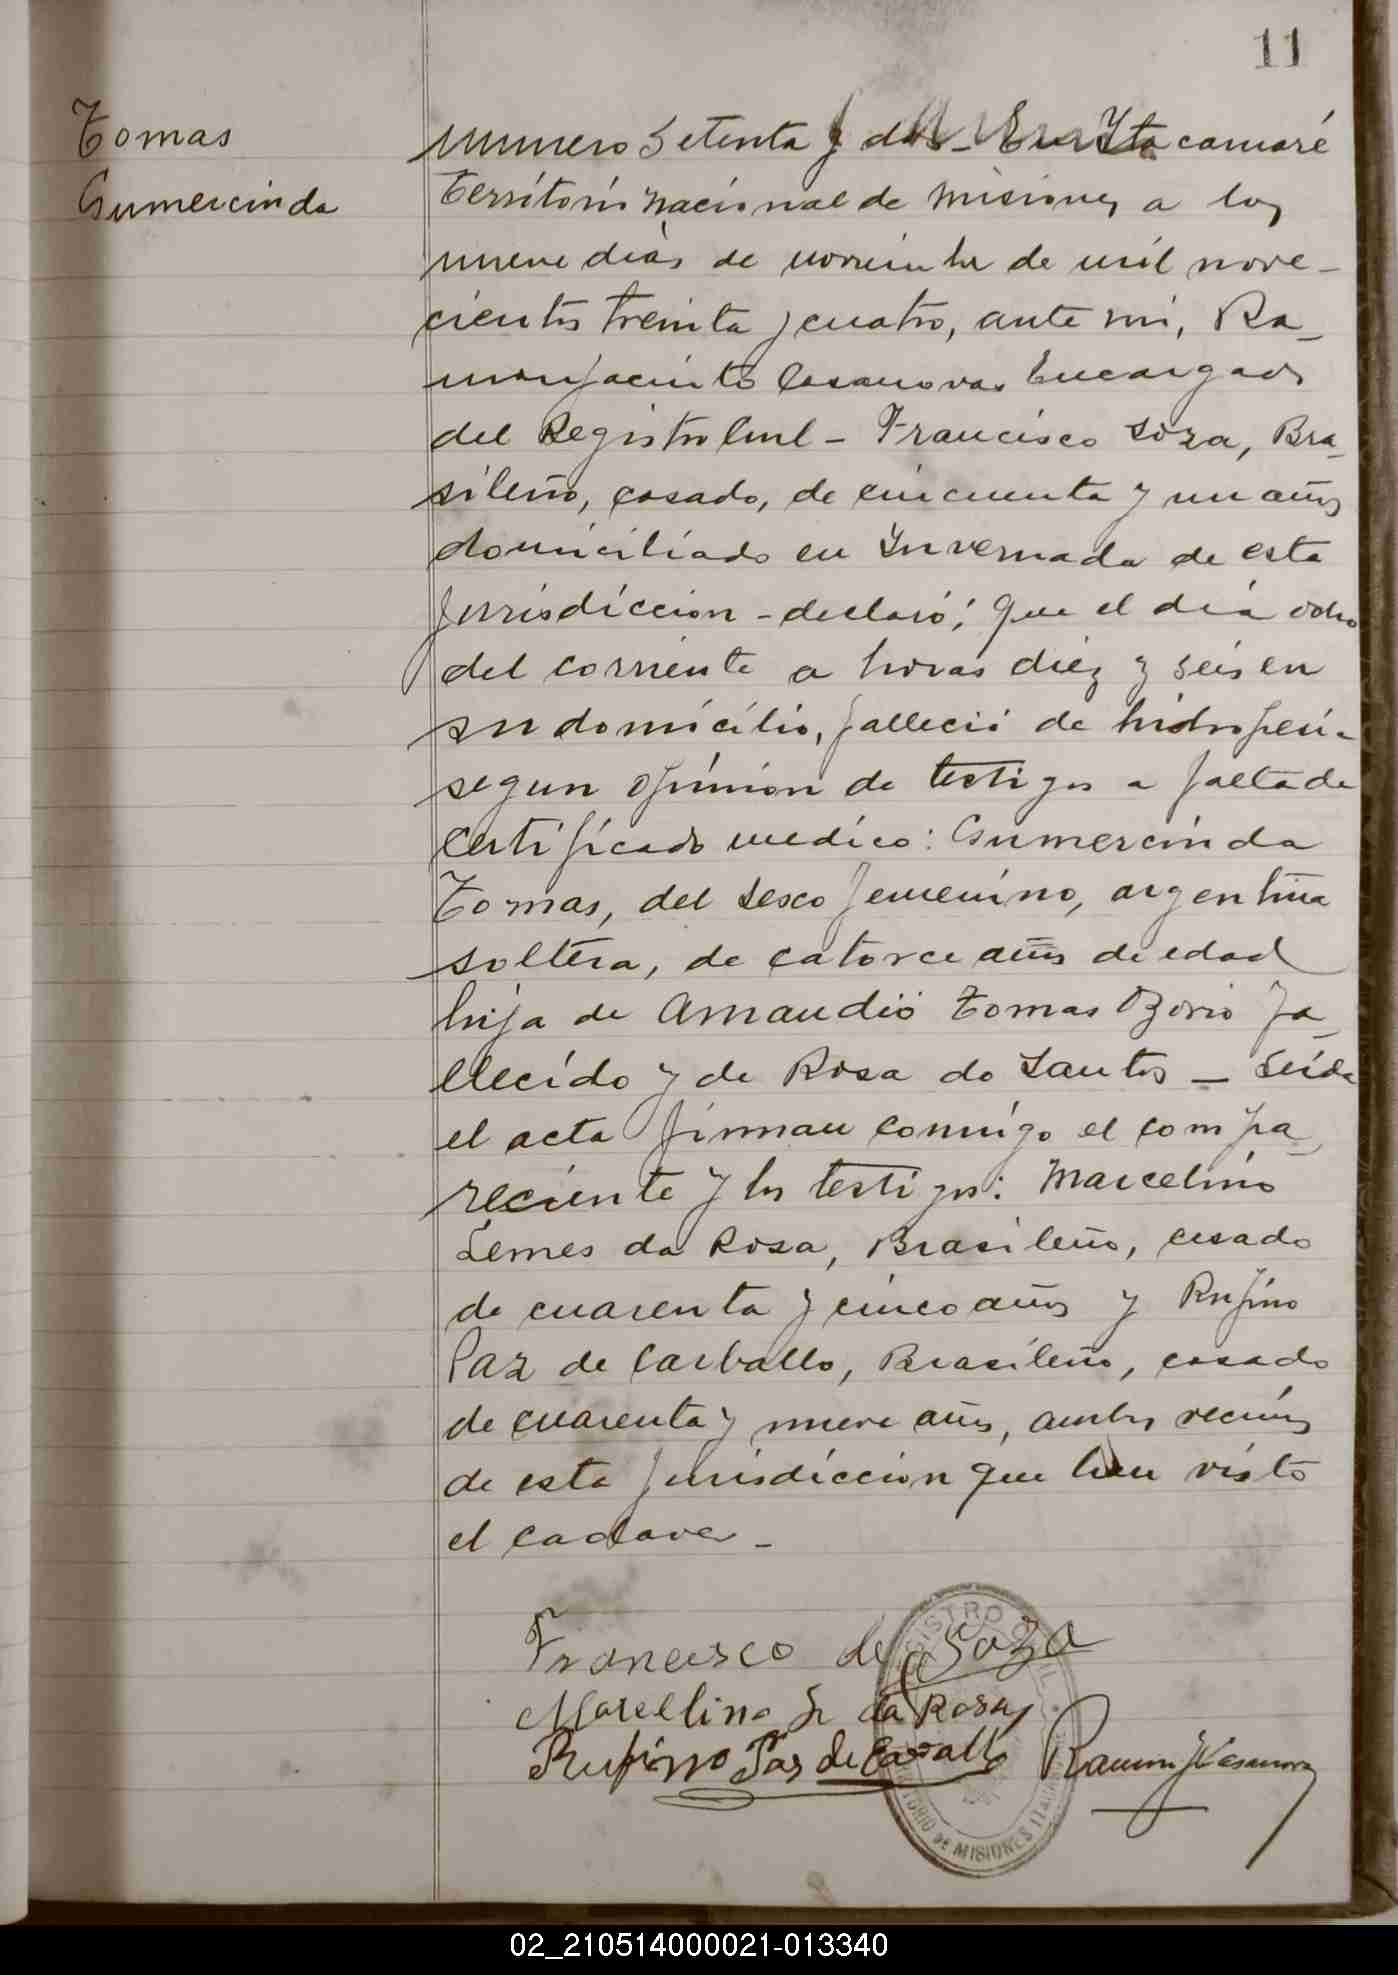 11
Tomas
Gumercinda
Numero Setenta y dos - En Itacaruaré
territorio nacional de Misiones a los
nueve dias de noviembre de mil nove-
cientos treinta y cuatro, ante mi, Ra-
mon Jacinto Casanovas Encargado
del Registro Civil - Francisco Soza, Bra-
sileño, casado, de cincuenta y un años
domiciliado en Invernada de esta
Jurisdiccion - declaró; que el dia ocho
del corriente a horas diez y seis en
su domicilio, falleció de hidropesia
segun opinion de testigos a falta de
certificado medico: Gumercinda
Tomas, del sexo femenino, argentina
soltera, de catorce años de edad
hija de Amaudio Tomas Ozorio fa-
llecido y de Rosa do Santos - Leida
el acta firman conmigo el compa-
reciente y los testigos: Marcelino
Lemes da Rosa, Brasileño, casado
de cuarenta y cinco años y Rufino
Paz de Carballo, Brasileño, casado
de cuarenta y nueve años, ambos vecinos
de esta jurisdiccion que han visto
el cadaver -
Francisco de Soza
Marcellino L da Rosa
Rufino Pas de Caralho Ramon J Casanova
REGISTRO CIVIL
TERRITORIO DE MISIONES
02_210514000021-013340